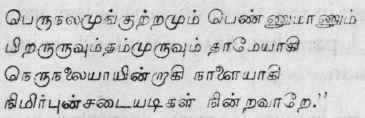 பெருநலமுங்குற்றமும் பெண்ணுமாணும்
பிறருருவுந்தம்முருவும் தாமேயாகி
நெருநலையாயின்றாகி நாளையாகி
நிமிர்புன்சடையடிகள் நின்றவாறே.”